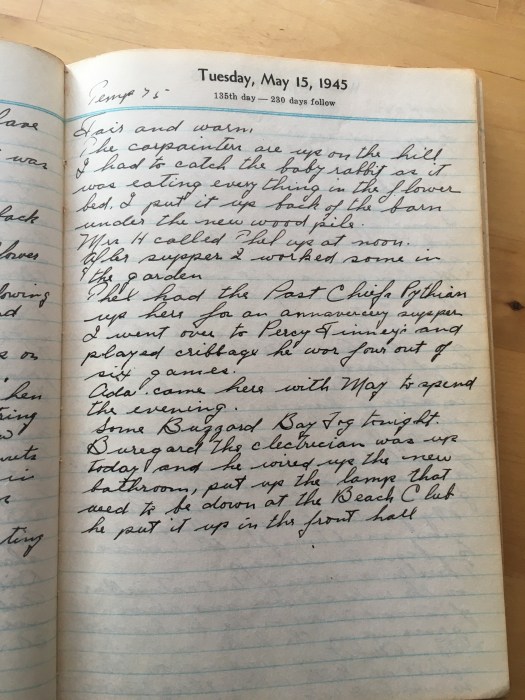 Tuesday, May 15, 1945
135th day — 230 days follow
Temp 75
Fair and warm.
The carpainters are up on the hill
I had to catch the baby rabbit as it
was eating everything in the flower
bed. I put it up back of the barn
under the new wood pile.
Mrs H called Thel up at noon.
After supper I worked some in
the garden
Thel had the Past Chiefs Pythian
up here for an annaversery supper
I went over to Percy Tinney's and
played cribbage he won four out of
six games.
Ada came here with May to spend
the evening.
Some Buzzard Bay Fog tonight.
Buregard the electrician was up
today and he wired up the new
bathroom, put up the lamp that
used to be down at the Beach Club
he put it up in the front hall
have
was
lack
flower
lowing
d
s on
hen
ring
w
in
ting